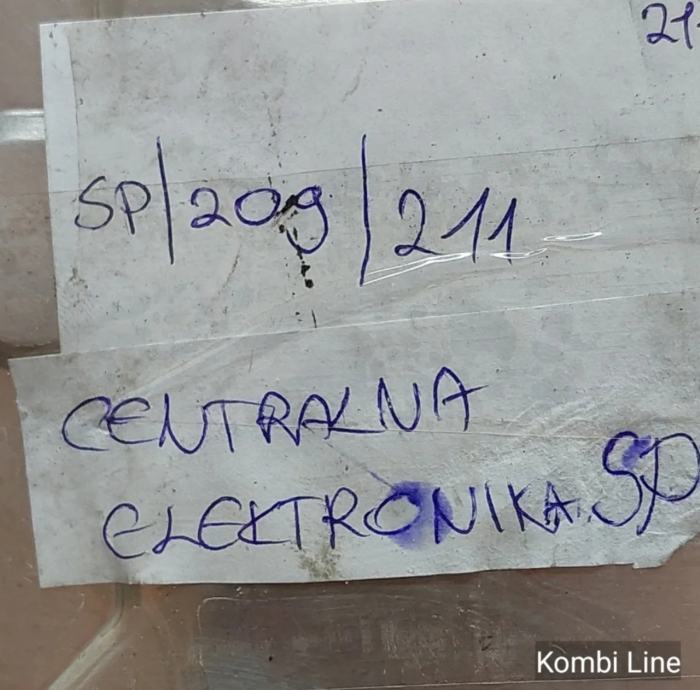 21
SP/209/211
CENTRALNA
ELEKTRONIKA SP
Kombi Line